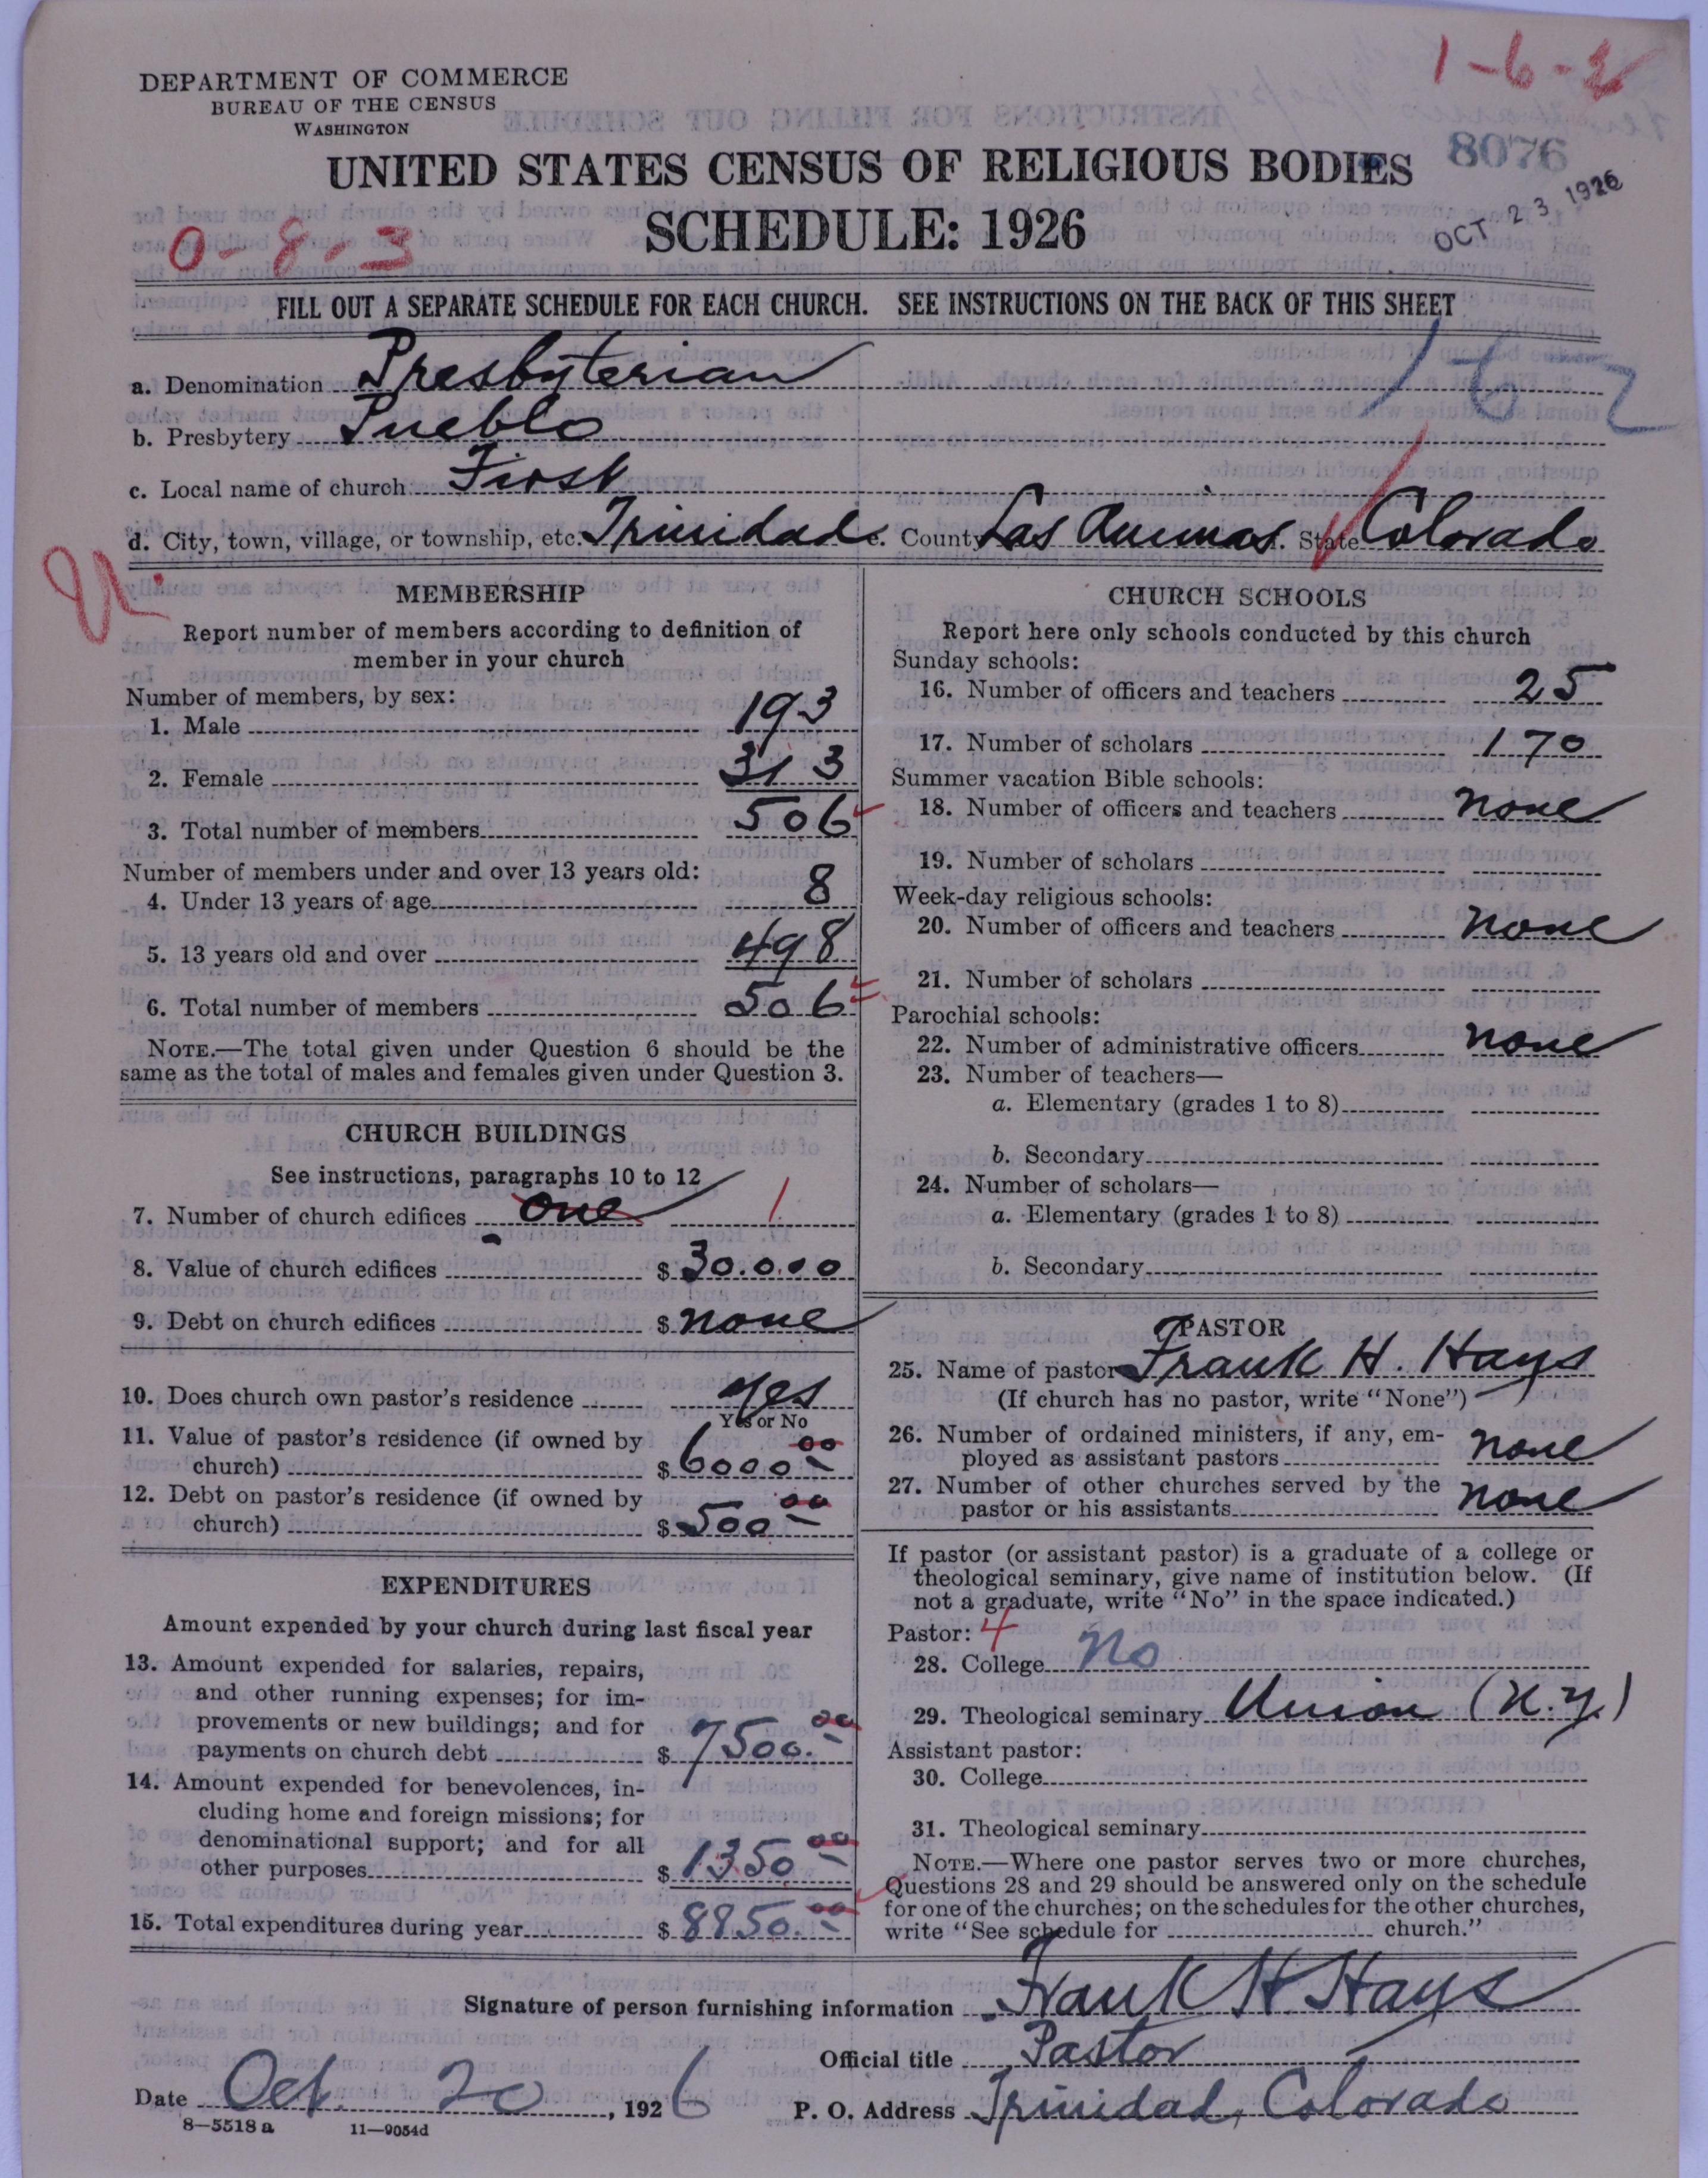 1-6-2
DEPARTMENT OF COMMERCE
BUREAU OF THE CENSUS
WASHINGTON
8076
UNITED STATES CENSUS OF RELIGIOUS BODIES
OCT 23 1926
SCHEDULE: 1926
0-8-3
FILL OUT A SEPARATE SCHEDULE FOR EACH CHURCH. SEE INSTRUCTIONS ON THE BACK OF THIS SHEET
a. Denomination Presbyterian
162
b. Presbytery Pueblo
c. Local name of church First
d. City, town, village, or township, etc. Trinidad e. County Las Animas f. State Colorado
MEMBERSHIP
Report number of members according to definition of
member in your church
Number of members, by sex:
1. Male 193
2. Female 313
3. Total number of members 506
Number of members under and over 13 years old:
4. Under 13 years of age 8
5. 13 years old and over 498
6. Total number of members 506
NOTE.—The total given under Question 6 should be the
same as the total of males and females given under Question 3.
CHURCH BUILDINGS
See instructions, paragraphs 10 to 12
7. Number of church edifices one 1
8. Value of church edifices $ 30.000
9. Debt on church edifices $ none
10. Does church own pastor's residence yes
Yes or No
11. Value of pastor's residence (if owned by
church) $ 6000 00
12. Debt on pastor's residence (if owned by
church) $ 500 00
EXPENDITURES
Amount expended by your church during last fiscal year
13. Amount expended for salaries, repairs,
and other running expenses; for im-
provements or new buildings; and for
payments on church debt $ 7500. 00
14. Amount expended for benevolences, in-
cluding home and foreign missions; for
denominational support; and for all
other purposes $ 1350 00
15. Total expenditures during year $ 8850. 00
CHURCH SCHOOLS
Report here only schools conducted by this church
Sunday schools:
16. Number of officers and teachers 25
17. Number of scholars 170
Summer vacation Bible schools:
18. Number of officers and teachers none
19. Number of scholars
Week-day religious schools:
20. Number of officers and teachers none
21. Number of scholars
Parochial schools:
22. Number of administrative officers none
23. Number of teachers—
a. Elementary (grades 1 to 8)
b. Secondary
24. Number of scholars—
a. Elementary (grades 1 to 8)
b. Secondary
PASTOR
25. Name of pastor Frank H. Hays
(If church has no pastor, write "None")
26. Number of ordained ministers, if any, em-
ployed as assistant pastors none
27. Number of other churches served by the
pastor or his assistants none
If pastor (or assistant pastor) is a graduate of a college or
theological seminary, give name of institution below. (If
not a graduate, write "No" in the space indicated.)
Pastor: 4
28. College No
29. Theological seminary Union (N.Y.)
Assistant pastor:
30. College
31. Theological seminary
NOTE.—Where one pastor serves two or more churches,
Questions 28 and 29 should be answered only on the schedule
for one of the churches; on the schedules for the other churches,
write "See schedule for church."
Signature of person furnishing information Frank H. Hays
Official title Pastor
Date Oct. 20, 1926
P. O. Address Trinidad, Colorado
8—5518 a 11—9054d